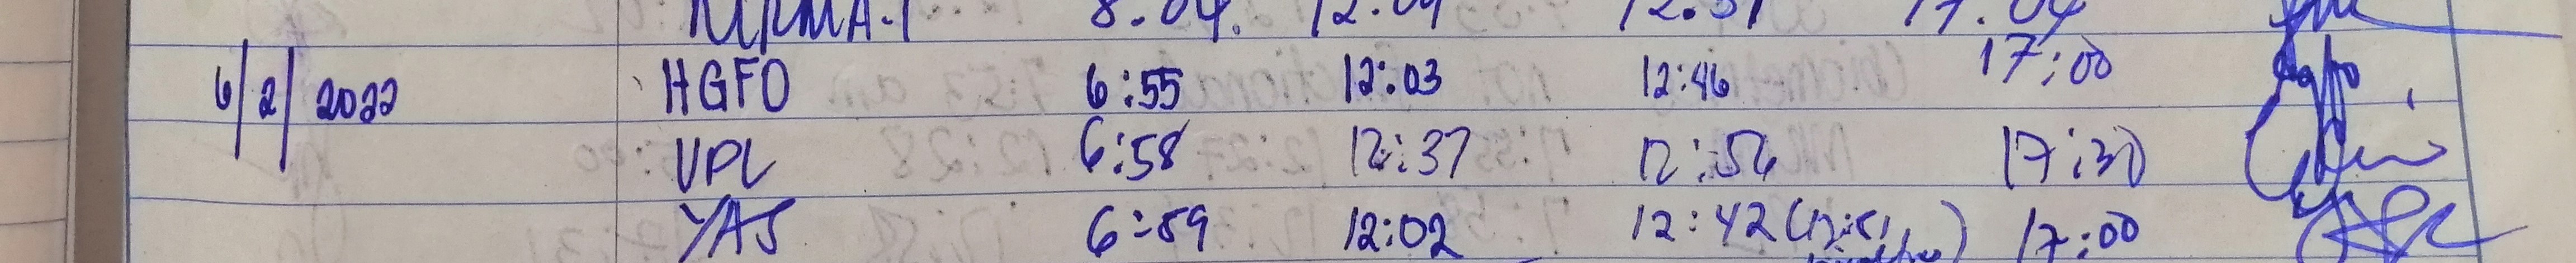 8:04. 12:04 12:51 17:04
6/2/2022 HGFO 6:55 12:03 12:46 17:00
VPL 6:58 12:37 12:54 17:30
YAS 6:59 12:02 12:42 (12:51 17:00